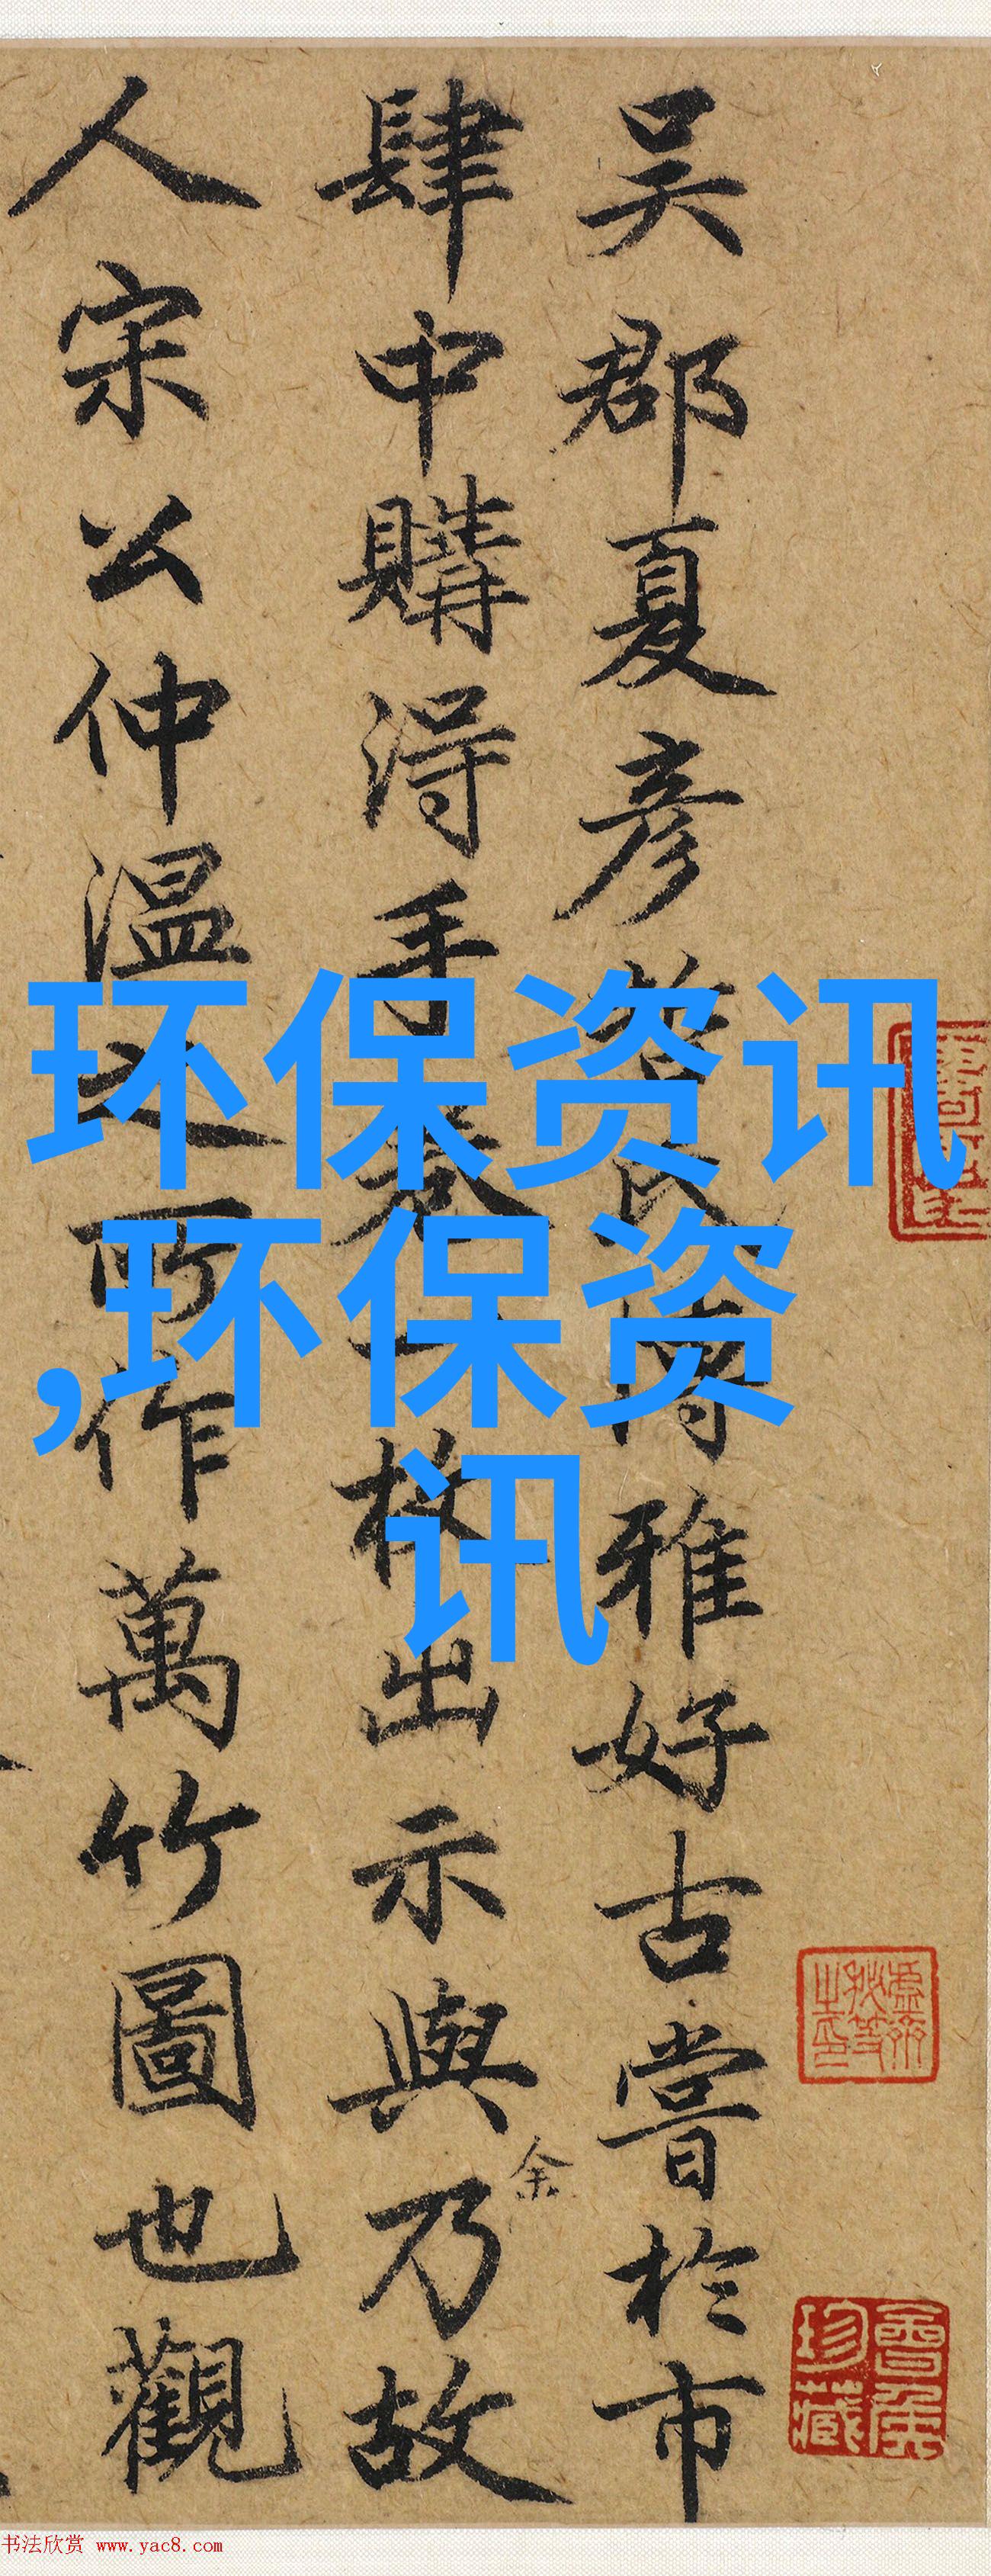 吴郡夏彦良雅好古嘗於市
肆中購得手卷一枚出示與余乃故
人宋公仲温之所作萬竹圖也觀
环保资讯
,环保资
讯
珍藏
书法欣赏 www.yac8.com